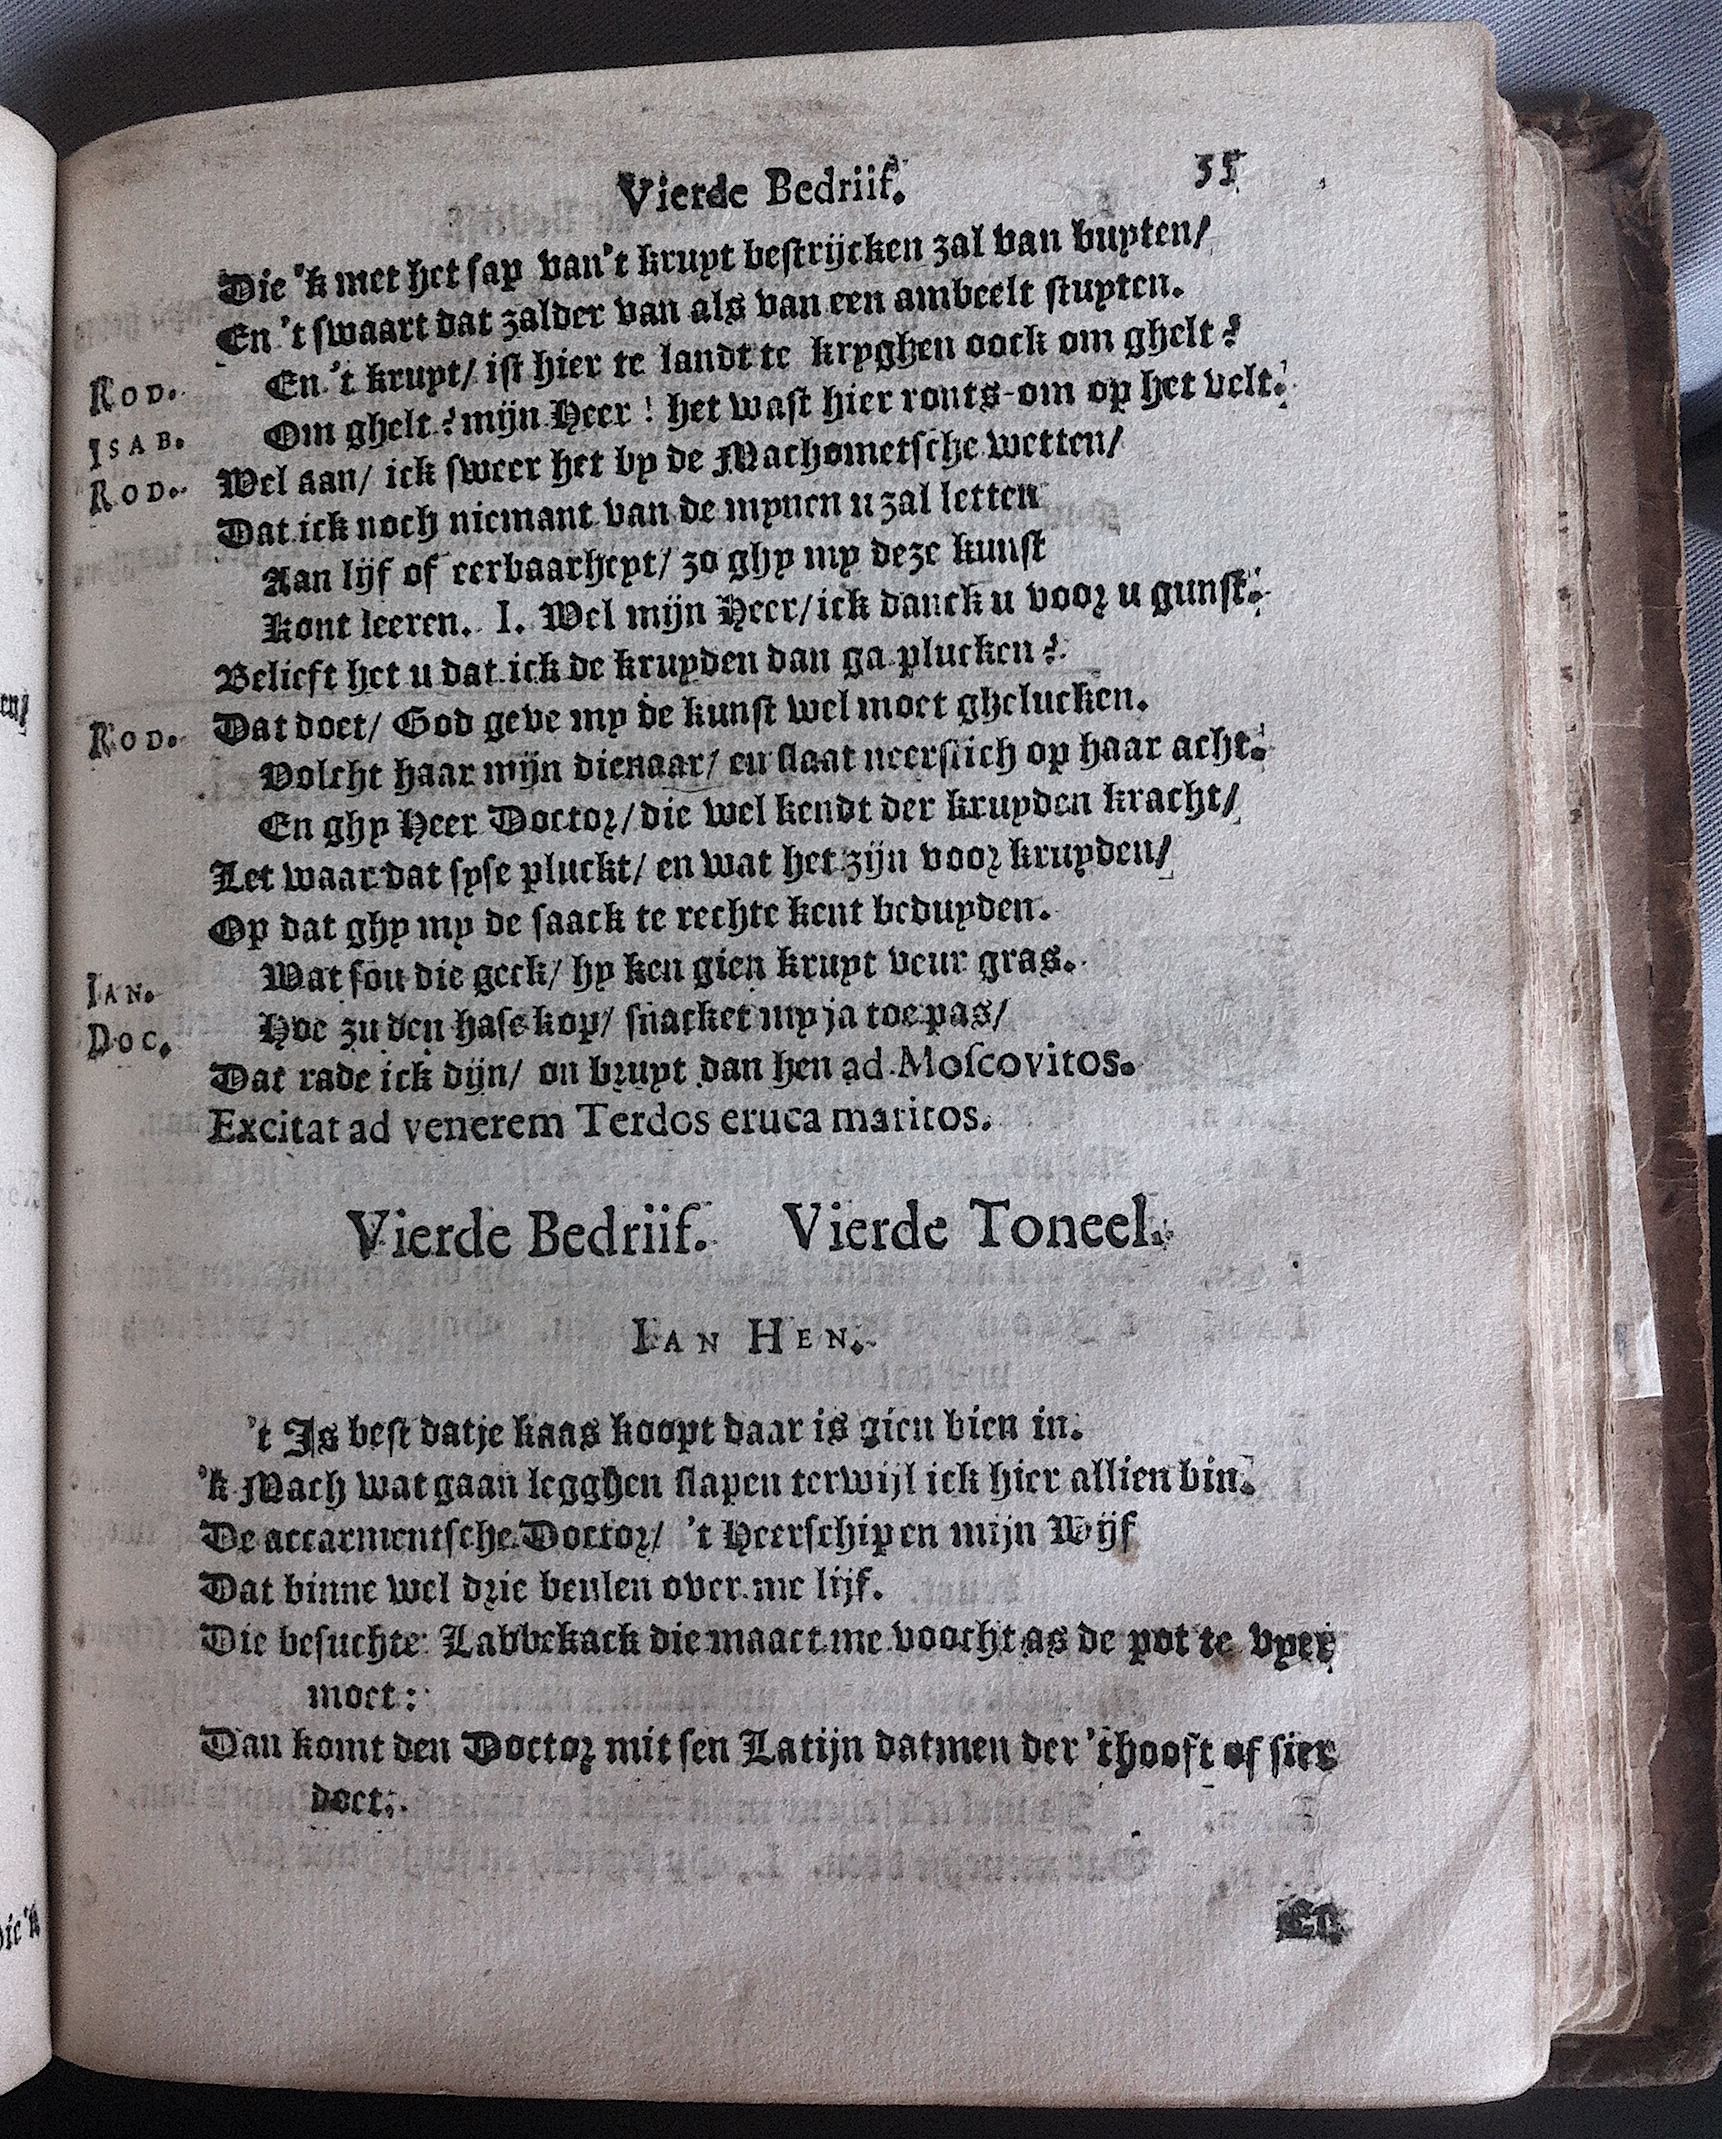 Vierde Bedriif. 35
Die 'k met het sap van't kruyt bestrijcken zal van buyten/
En 't swaart dat zalder van als van een ambeelt stuyten.
Rod. En 't kruyt/ ist hier te landt te kryghen oock om ghelt?
Isab. Om ghelt? mijn Heer! het wast hier ronts-om op het velt.
Rod. Wel aan/ ick sweer het by de Machometsche wetten/
Dat ick noch niemant van de mynen u zal letten
Aan lijf of eerbaarheyt/ zo ghy my deze kunst
Kont leeren. I. Wel mijn Heer/ ick danck u voor u gunst.
Belieft het u dat ick de kruyden dan ga plucken?
Rod. Dat doet/ God geve my de kunst wel moet ghelucken.
Volcht haar mijn dienaar/ en slaat neerstich op haar acht.
En ghy Heer Doctor/ die wel kendt der kruyden kracht/
Let waar dat syse pluckt/ en wat het zijn voor kruyden/
Op dat ghy my de saack te rechte kent beduyden.
Ian. Wat sou die geck/ hy ken gien kruyt veur gras.
Doc. Hoe zu den hase kop/ snacket my ja toe pas/
Dat rade ick dijn/ on bruyt dan hen ad Moscovitos.
Excitat ad venerem Terdos eruca maritos.
Vierde Bedriif. Vierde Toneel.
Ian Hen.
't Is best datje kaas koopt daar is gien bien in.
'k Mach wat gaan legghen slapen terwijl ick hier allien bin.
De accarmentsche Doctor/ 't Heerschip en mijn Wijf
Dat binne wel drie beulen over me lijf.
Die besuchte Labbekack die maact me voocht as de pot te vyer
moet:
Dan komt den Doctor mit sen Latijn datmen der 't hooft of sier
doet.
En